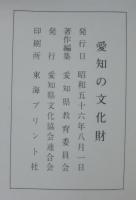 愛知の文化財
発行日 昭和五十六年八月一日
著作編集 愛知県教育委員会
発行 愛知県文化協会連合会
印刷所 東海プリント社